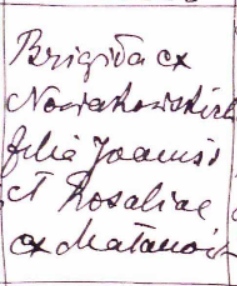 Brigida ex
Nowakowskich
filia Joannis
et Rosaliae
ex